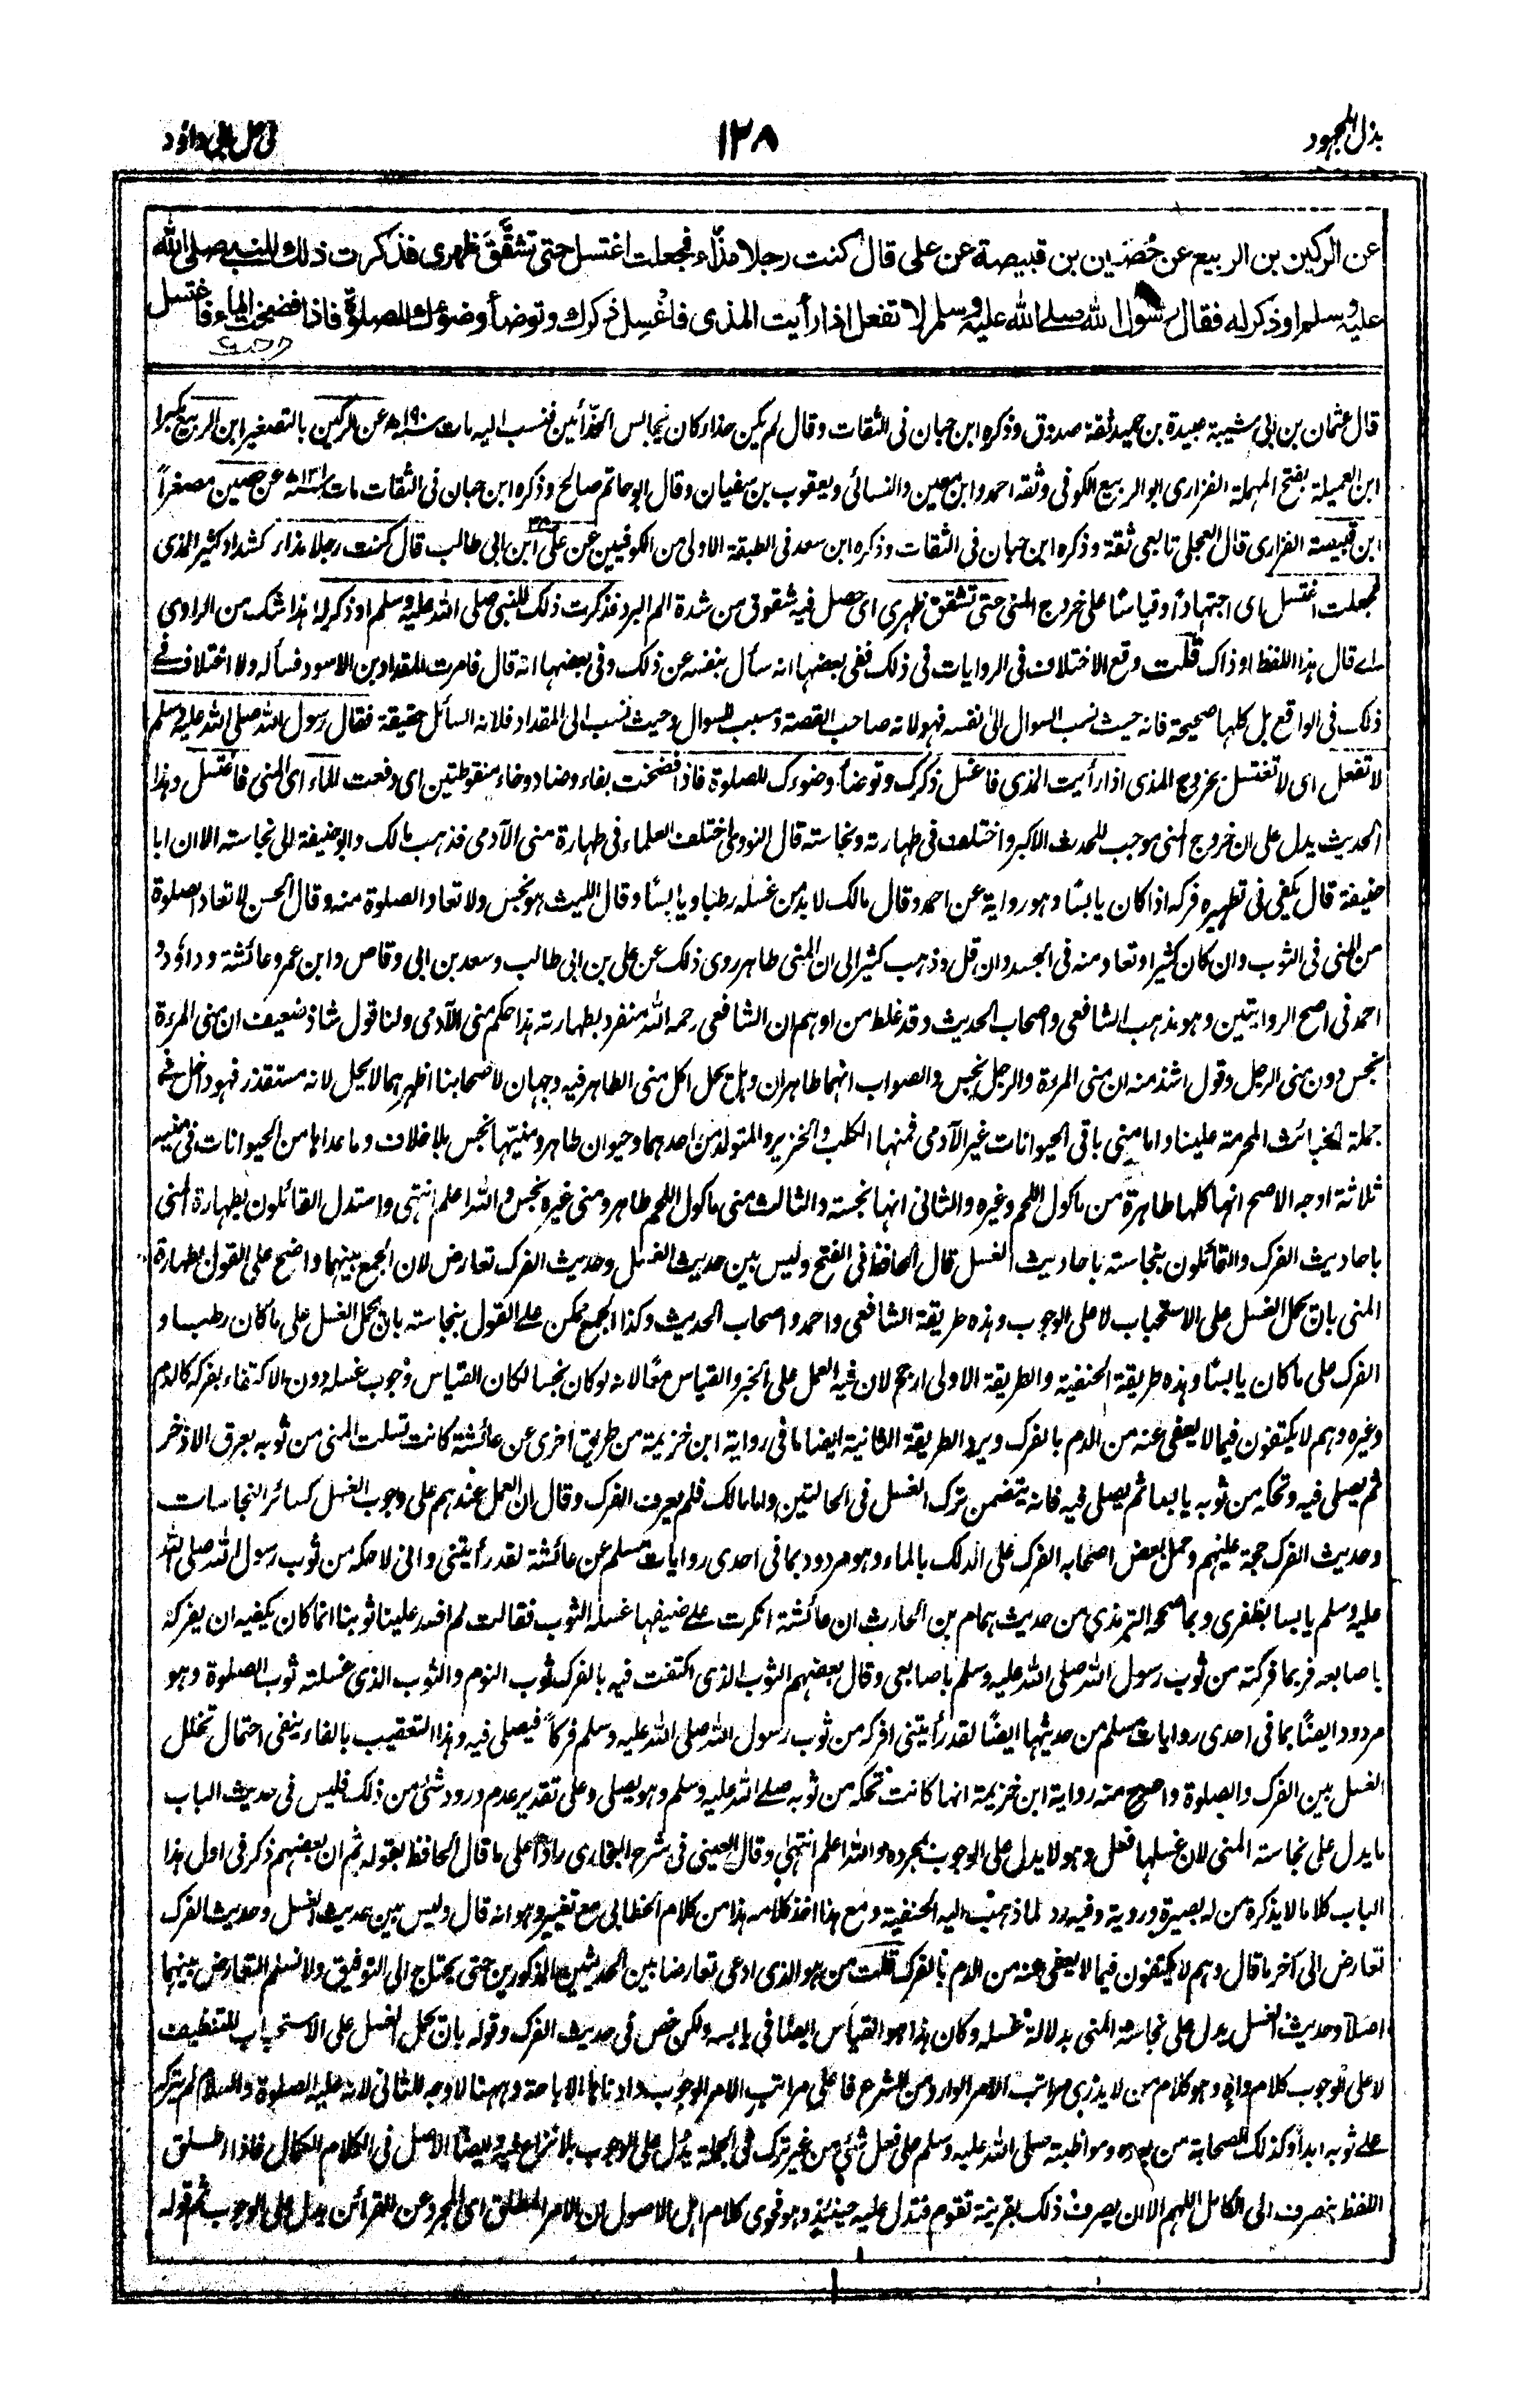 بذل المجهود
١٢٨
فی حل ابی داؤد
عن الركين بن الربيع عن حُصَين بن قبيصة عن على قال كنت رجلا مذّاء فجعلت اغتسل حتى تشقَّقَ ظهرى فذكرت ذلك للنبى صلى الله
عليه وسلم او ذكر له فقال رسول الله صلے الله عليه وسلم لا تفعل اذا رأيت المذى فاغْسِل ذكرك وتوضأ وضوءك للصلوة فاذا فضخت الماء فاغتسل
قال عثمان بن ابى شيبة عبيدة بن حميد ثقة صدوق وذكره ابن حبان فى الثقات وقال لم يكن حذاء كان يجالس الحذّائين فنسب اليه مات سنة ١٩٠ھ عن الركين بالتصغير ابن الربيع مكبرا
ابن العميلة بفتح المهملة الفزارى ابو الربيع الكوفى وثقه احمد وابن معين والنسائى ويعقوب بن سفيان وقال ابو حاتم صالح وذكره ابن حبان فى الثقات مات سنة ١٣١ھ عن حصين مصغراً
ابن قبيصة الفزارى قال العجلى تابعى ثقة وذكره ابن حبان فى الثقات وذكره ابن سعد فى الطبقة الاولى من الكوفيين عن على ابن ابى طالب قال كنت رجلا مذاء كشداد كثير المذى
فجعلت اغتسل اى اجتهاداً وقياسًا على خروج المنى حتى تشقق ظهرى اى حصل فيه شقوق من شدة الم البرد فذكرت ذلك للنبى صلى الله عليه وسلم او ذكر له هذا شك من الراوى
اے قال هذا اللفظ او ذاك قلت وقع الاختلاف فى الروايات فى ذلك ففى بعضها انه سأل بنفسه عن ذلك وفى بعضها انه قال فامرت المقداد بن الاسود فسأله ولا اختلاف فے
ذلك فى الواقع بل كلها صحيحة فانه حيث نسب السوال الى نفسه فهو لانه صاحب القصة ومسبب للسوال وحيث نسب الى المقداد فلانه السائل حقيقة فقال رسول الله صلى الله عليه وسلم
لا تفعل اى لا تغتسل بخروج المذى اذا رأيت المذى فاغسل ذكرك وتوضأ وضوءك للصلوة فاذا فضخت بفاء وضاد وخاء منقوطتين اى دفعت الماء اى المنى فاغتسل وهذا
الحديث يدل على ان خروج المنى موجب للحدث الاكبر واختلف فى طهارته ونجاسته قال النووى اختلف العلماء فى طهارة منى الآدمى فذهب مالك وابو حنيفة الى نجاسته الا ان ابا
حنيفة قال يكفى فى تطهيره فركه اذا كان يابسًا وهو رواية عن احمد وقال مالك لا بد من غسله رطبا ويابسًا وقال الليث هو نجس ولا تعاد الصلوة منه وقال الحسن لا تعاد الصلوة
من المنى فى الثوب وان كان كثيرا وتعاد منه فى الجسد وان قل وذهب كثير الى ان المنى طاهر روى ذلك عن على بن ابى طالب وسعد بن ابى وقاص وابن عمر وعائشة وداؤد و
احمد فى اصح الروايتين وهو مذهب الشافعى واصحاب الحديث وقد غلط من اوهم ان الشافعى رحمه الله منفرد بطهارته هذا حكم منى الآدمى ولنا قول شاذ ضعيف ان منى المرءة
نجس دون منى الرجل وقول اشذ منه ان منى المرءة والرجل نجس والصواب انهما طاهران وهل يحل اكل منى الطاهر فيه وجهان لاصحابنا اظهرهما لا يحل لانه مستقذر فهو داخل فى
جملة الخبائث المحرمة علينا واما منى باقى الحيوانات غير الآدمى فمنها الكلب والخنزير والمتولد من احدهما وحيوان طاهر ومنيها نجس بلا خلاف وما عداها من الحيوانات فى منيه
ثلاثة اوجه الاصح انها كلها طاهرة من ماكول اللحم وغيره والثانى انها نجسة والثالث منى ماكول اللحم طاهر ومنى غيره نجس والله اعلم انتهى واستدل القائلون بطهارة المنى
باحاديث الفرك والقائلون بنجاسته باحاديث الغسل قال الحافظ فى الفتح وليس بين حديث الغسل وحديث الفرك تعارض لان الجمع بينهما واضح على القول بطهارة
المنى بان يحمل الغسل على الاستحباب لا على الوجوب وهذه طريقة الشافعى واحمد واصحاب الحديث وكذا الجمع ممكن علے القول بنجاسته بان يحمل الغسل على ما كان رطبا و
الفرك على ما كان يابسًا وهذه طريقة الحنفية والطريقة الاولى ارجح لان فيه العمل على الخبر والقياس معًا لانه لو كان نجسا لكان القياس وجوب غسله دون الاكتفاء بفركه كالدم
وغيره وهم لا يكتفون فيما لا يعفى عنه من الدم بالفرك ويرد الطريقة الثانية ايضا ما فى رواية ابن خزيمة من طريق اخرى عن عائشة كانت تسلت المنى من ثوبه بعرق الاذخر
ثم يصلى فيه وتحكه من ثوبه يابسا ثم يصلى فيه فانه يتضمن ترك الغسل فى الحالتين واما مالك فلم يعرف الفرك وقال ان العمل عندهم على وجوب الغسل كسائر النجاسات
وحديث الفرك حجة عليهم وحمل بعض اصحابه الفرك على الدلك بالماء وهو مردود بما فى احدى روايات مسلم عن عائشة لقد رأيتنى وانى لاحكه من ثوب رسول الله صلى الله
عليه وسلم يابسا بظفرى وبما صححه الترمذى من حديث همام بن الحارث ان عائشة انكرت علے ضيفها غسله الثوب فقالت لم افسد علينا ثوبنا انما كان يكفيه ان يفركه
باصابعه فربما فركته من ثوب رسول الله صلى الله عليه وسلم باصابعى وقال بعضهم الثوب الذى اكتفت فيه بالفرك ثوب النوم والثوب الذى غسلته ثوب الصلوة وهو
مردود ايضًا بما فى احدى روايات مسلم من حديثها ايضًا لقد رأيتنى افركه من ثوب رسول الله صلى الله عليه وسلم فركاً فيصلى فيه وهذا التعقيب بالفاء ينفى احتمال تخلل
الغسل بين الفرك والصلوة واصرح منه رواية ابن خزيمة انها كانت تحكه من ثوبه صلے الله عليه وسلم وهو يصلى وعلى تقدير عدم ورود شئ من ذلك فليس فى حديث الباب
ما يدل على نجاسة المنى لان غسلها فعل وهو لا يدل على الوجوب بمجرده والله اعلم انتهى وقال العينى فى شرح البخارى راداً على ما قال الحافظ بقوله ثم ان بعضهم ذكر فى اول هذا
الباب كلاما لا يذكره من له بصيرة وروية وفيه رد لما ذهبت اليه الحنفية ومع هذا اخذ كلامه هذا من كلام الخطابى مع تغيير وهو انه قال وليس بين حديث الغسل وحديث الفرك
تعارض الى آخر ما قال وهم لا يكتفون فيما لا يعفى عنه من الدم بالفرك قلت من هو الذى ادعى تعارضا بين الحديثين المذكورين حتى يحتاج الى التوفيق ولا نسلم التعارض بينهما
اصلاً وحديث الغسل يدل على نجاسة المنى بدلالة غسله وكان هذا هو القياس ايضًا فى يابسه ولكن خص فى حديث الفرك وقوله بان يحمل الغسل على الاستحباب للتنظيف
لا على الوجوب كلام واه وهو كلام من لا يدرى مراتب الامر الوارد من الشرع فاعلى مراتب الامر الوجوب وادناها الاباحة وههنا لا وجه للثانى لانه عليه الصلوة والسلام لم يتركه
علے ثوبه ابداً وكذلك الصحابة من بعده ومواظبته صلى الله عليه وسلم على فعل شئ من غير ترك فى الجملة يدل على الوجوب بلا نزاع فيه وايضًا الاصل فى الكلام الكمال فاذا اطلق
اللفظ ينصرف الى الكامل اللهم الا ان يصرف ذلك بقرينة تقوم فتدل عليه حينئذ وهو فحوى كلام اهل الاصول ان الامر المطلق اى المجرد عن القرائن يدل على الوجوب ثم قوله